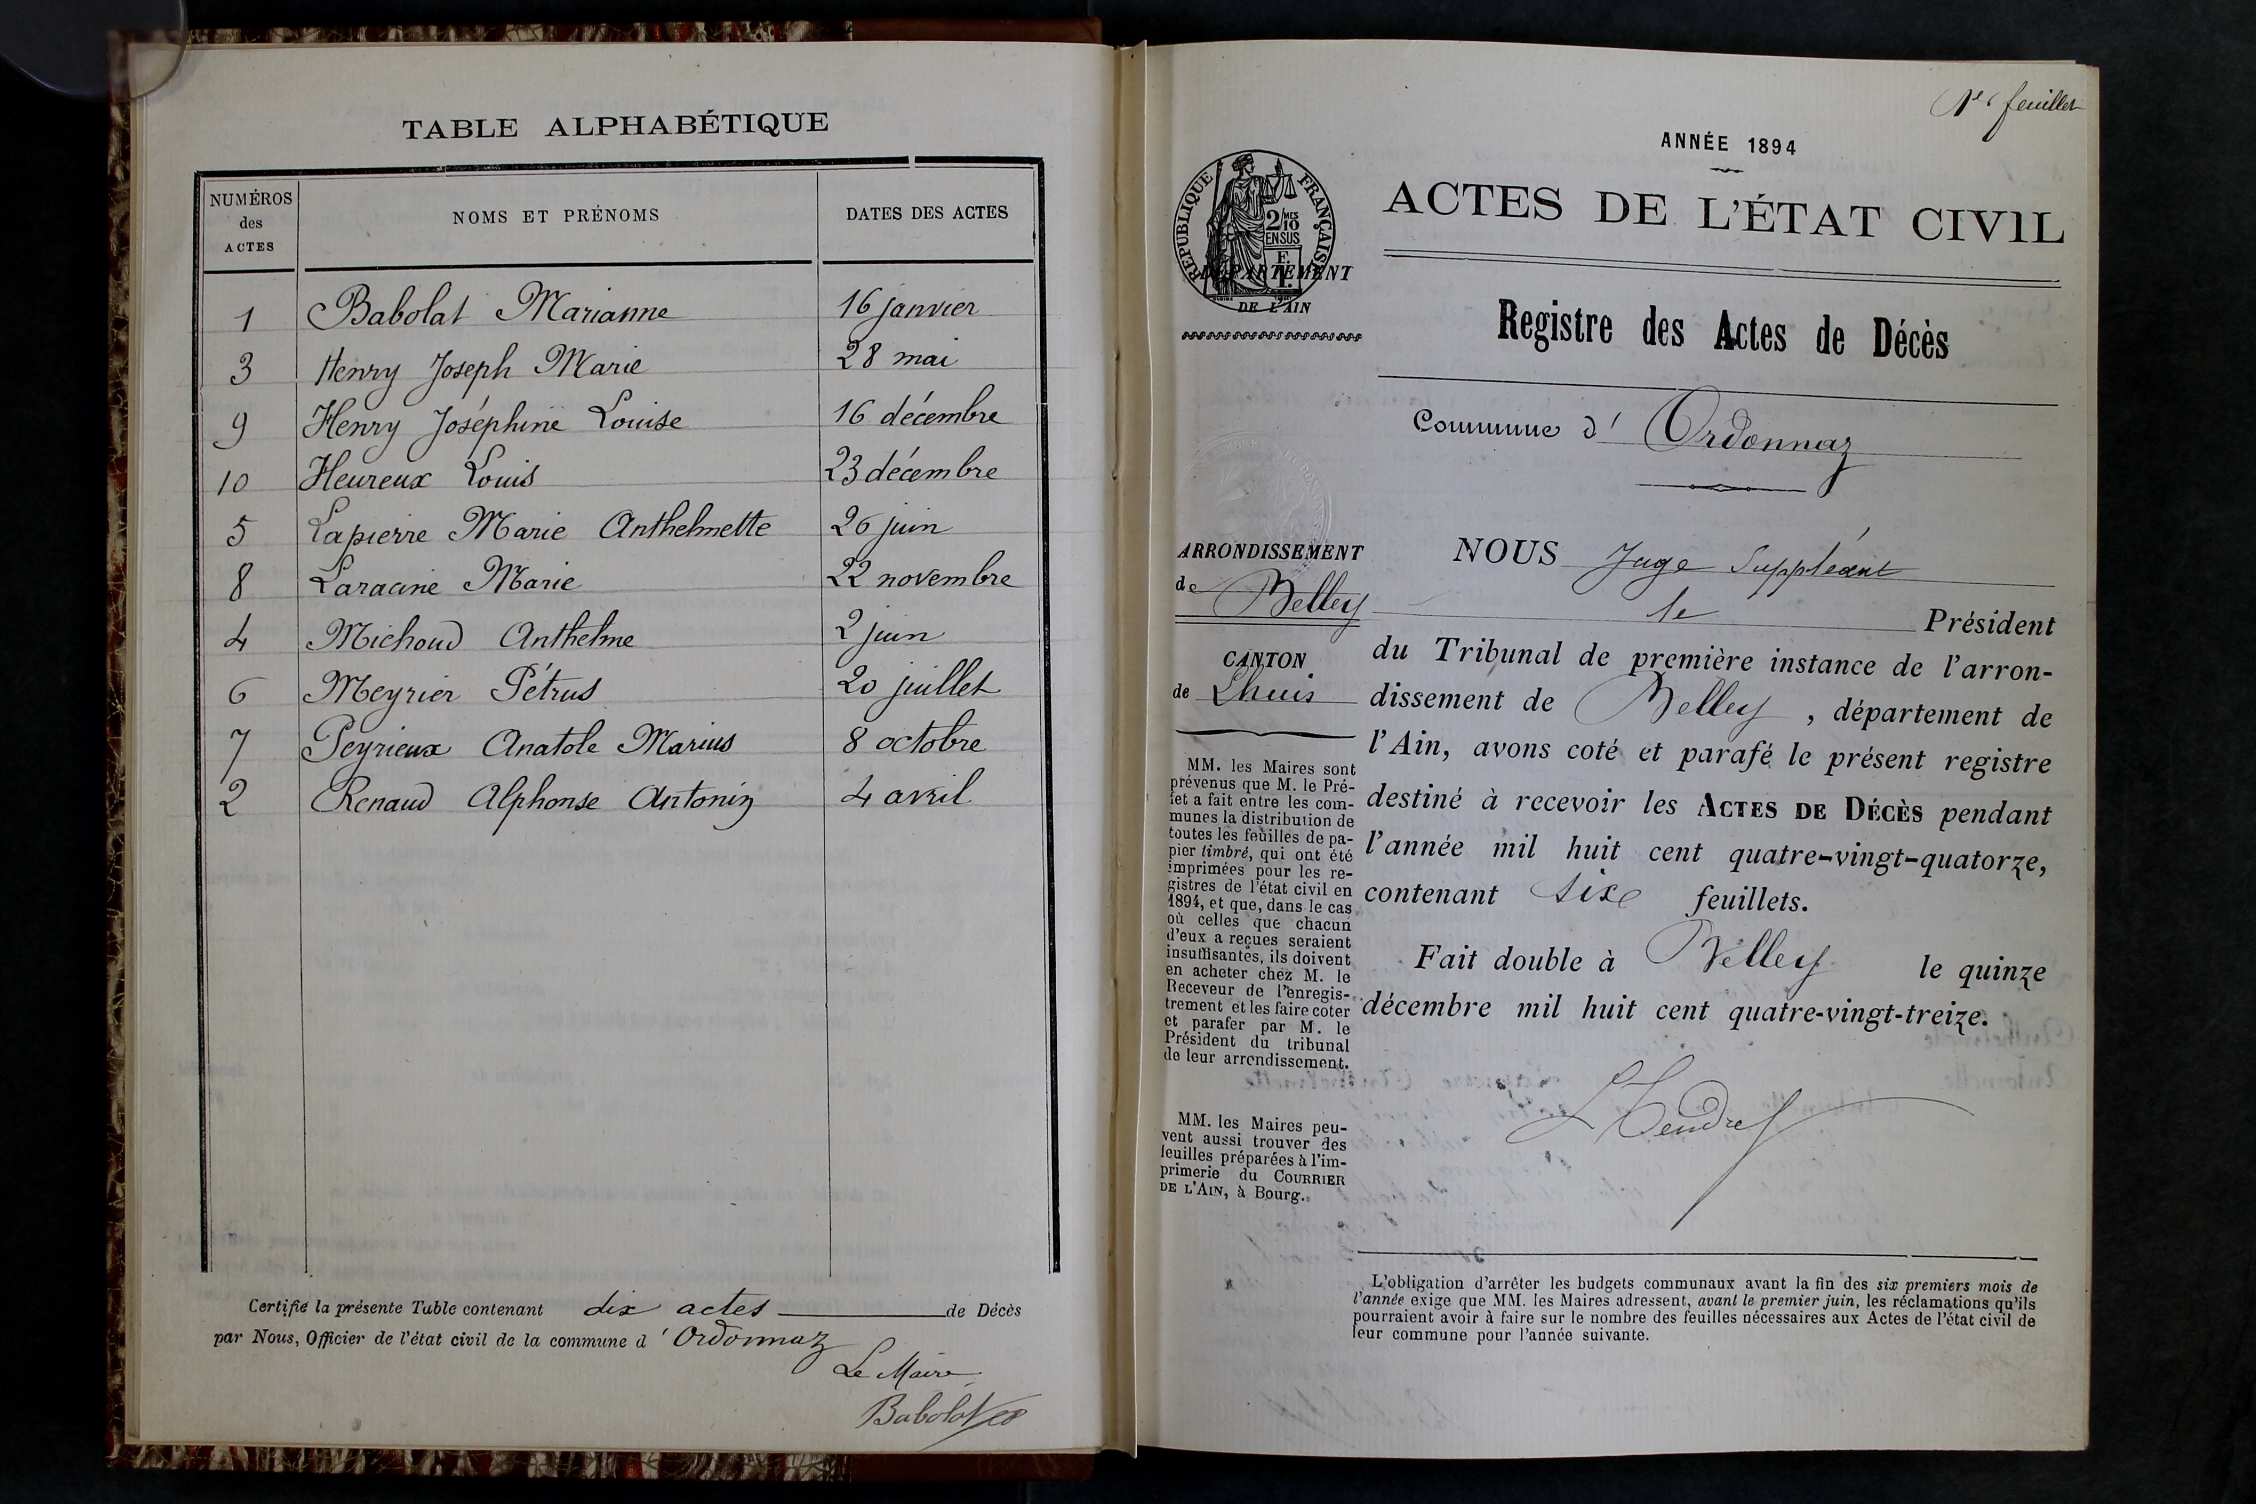 TABLE ALPHABÉTIQUE
NUMÉROS des ACTES NOMS ET PRÉNOMS DATES DES ACTES
1 Babolat Marianne 16 janvier
3 Henry Joseph Marie 28 mai
9 Henry Joséphine Louise 16 décembre
10 Heureux Louis 23 décembre
5 Lapierre Marie Anthelmette 26 juin
8 Laracine Marie 22 novembre
4 Michoud Anthelme 2 juin
6 Meyrier Pétrus 20 juillet
7 Peyrieux Anatole Marius 8 octobre
2 Renaud Alphonse Antonin 4 avril
Certifié la présente Table contenant dix actes de Décès
par Nous, Officier de l'état civil de la commune d'Ordonnaz
Le Maire
Babolat
1er feuillet
ANNÉE 1894
ACTES DE L'ÉTAT CIVIL
RÉPUBLIQUE FRANÇAISE
2/10 MES
EN SUS
DÉPARTEMENT
DE L'AIN
Registre des Actes de Décès
Commune d'Ordonnaz
ARRONDISSEMENT
de Belley
CANTON
de Lhuis
MM. les Maires sont
prévenus que M. le Pré-
fet a fait entre les com-
munes la distribution de
toutes les feuilles de pa-
pier timbré, qui ont été
imprimées pour les re-
gistres de l'état civil en
1894, et que, dans le cas
où celles que chacun
d'eux a reçues seraient
insuffisantes, ils doivent
en acheter chez M. le
Receveur de l'enregis-
trement et les faire coter
et parafer par M. le
Président du tribunal
de leur arrondissement.
MM. les Maires peu-
vent aussi trouver des
feuilles préparées à l'im-
primerie du COURRIER
DE L'AIN, à Bourg.
NOUS Juge Suppléant
le Président
du Tribunal de première instance de l'arron-
dissement de Belley, département de
l'Ain, avons coté et parafé le présent registre
destiné à recevoir les ACTES DE DÉCÈS pendant
l'année mil huit cent quatre-vingt-quatorze,
contenant six feuillets.
Fait double à Belley le quinze
décembre mil huit cent quatre-vingt-treize.
L'obligation d'arrêter les budgets communaux avant la fin des six premiers mois de
l'année exige que MM. les Maires adressent, avant le premier juin, les réclamations qu'ils
pourraient avoir à faire sur le nombre des feuilles nécessaires aux Actes de l'état civil de
leur commune pour l'année suivante.